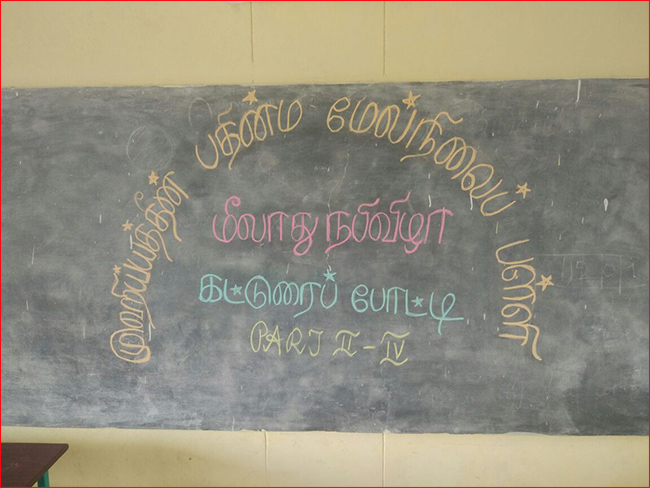 முஹிய்யித்தீன் பதின்ம மேல்நிலைப் பள்ளி
மீலாது நபிவிழா
கட்டுரைப் போட்டி
PART II - IV